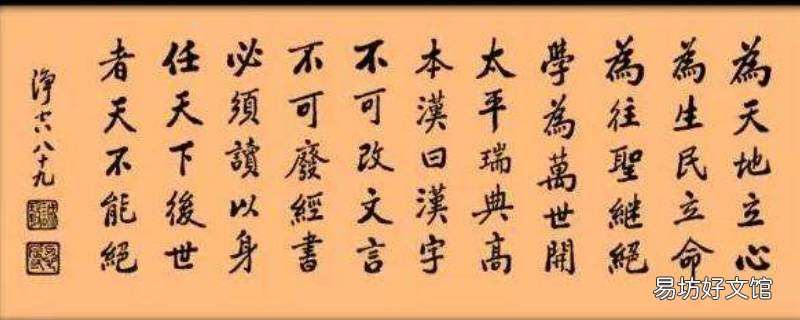 為天地立心
為生民立命
為往聖繼絕
學為萬世開
太平瑞典高
本漢曰漢字
不可改文言
不可廢經書
必須讀以身
任天下後世
者天不能絕
淨空八十九
易坊好文馆